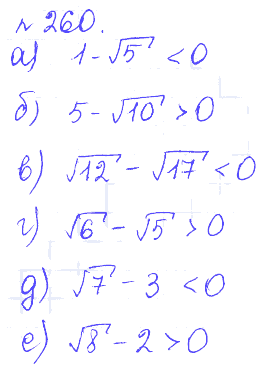 № 260.
а) 1 - √5 < 0
б) 5 - √10 > 0
в) √12 - √17 < 0
г) √6 - √5 > 0
д) √7 - 3 < 0
е) √8 - 2 > 0